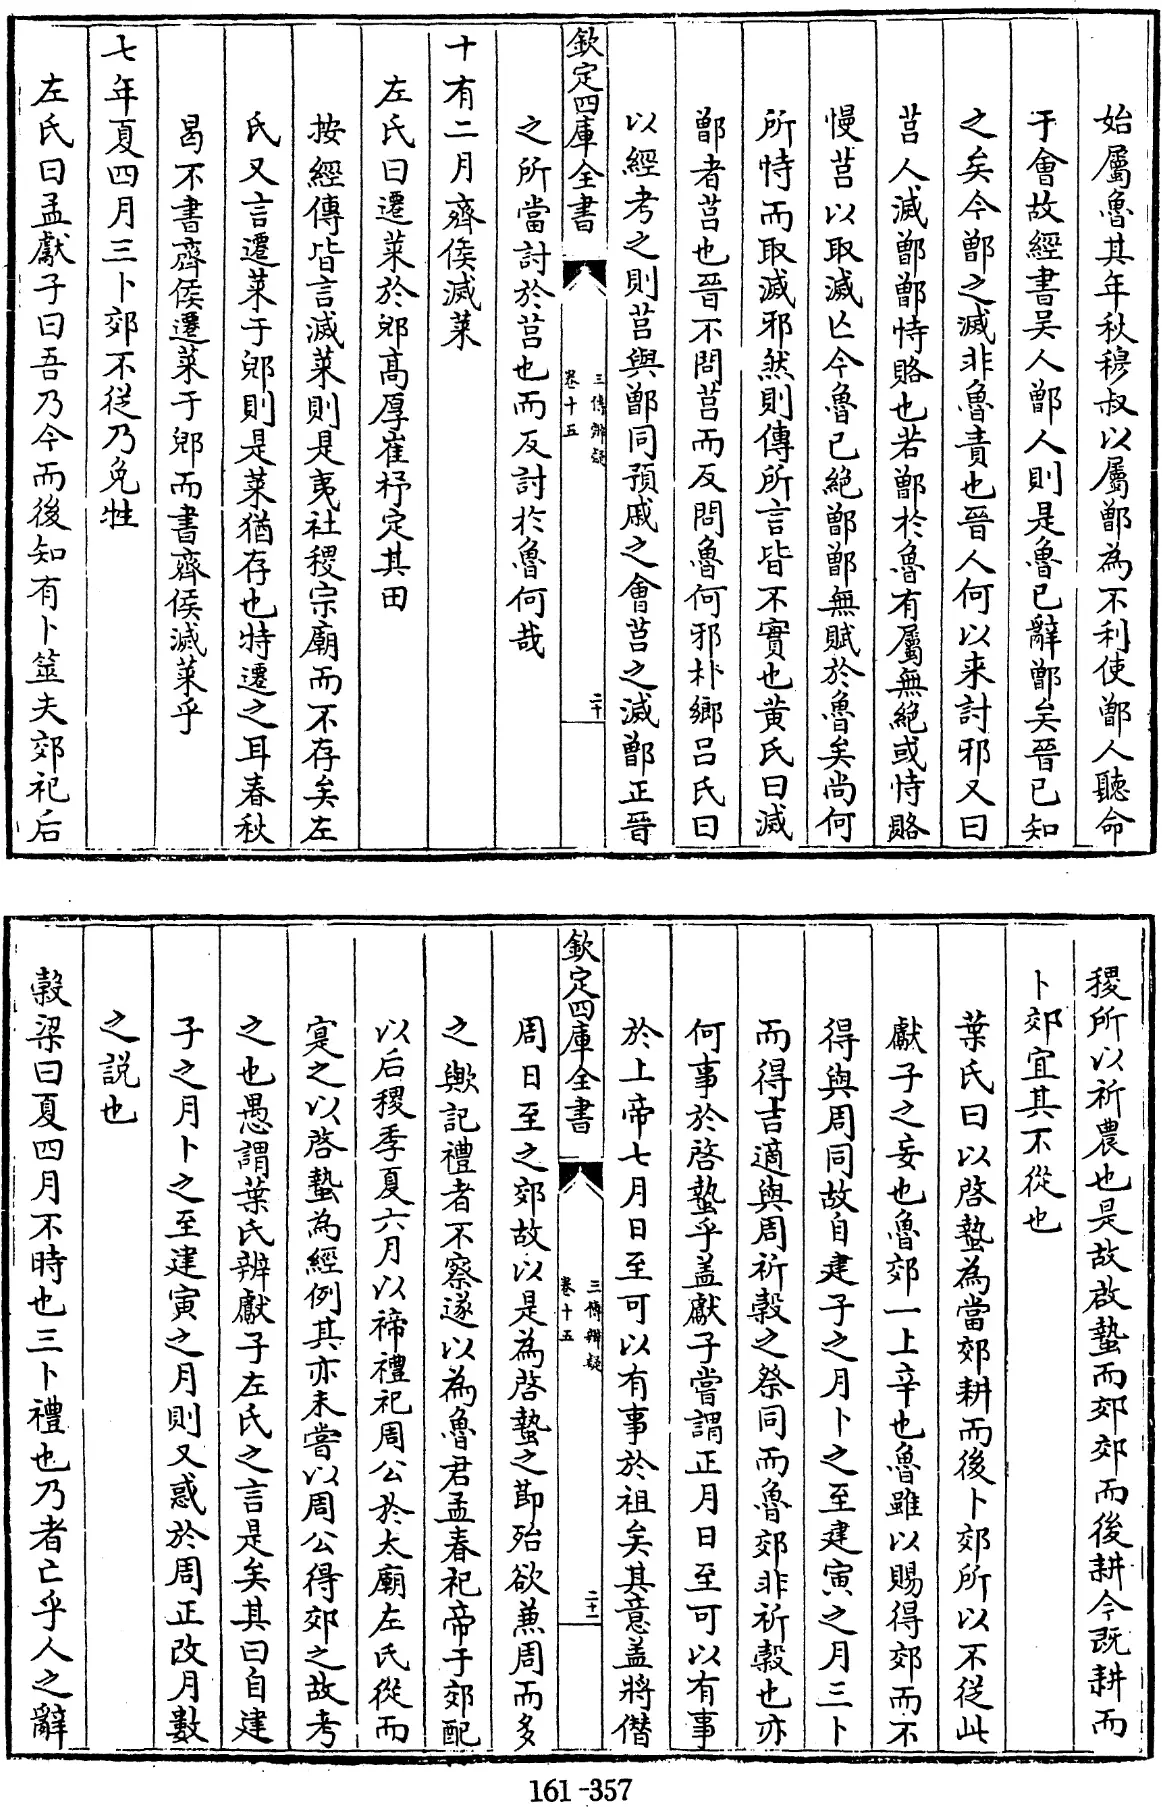 始屬魯其年秋穆叔以屬鄫為不利使鄫人聽命
于會故經書吳人鄫人則是魯已辭鄫矣晉已知
之矣今鄫之滅非魯責也晉人何以来討邪又曰
莒人滅鄫鄫恃賂也若鄫於魯有屬無絶或恃賂
慢莒以取滅亡今魯已絶鄫鄫無賦於魯矣尚何
所恃而取滅邪然則傳所言皆不實也黄氏曰滅
鄫者莒也晉不問莒而反問魯何邪朴鄉呂氏曰
以經考之則莒與鄫同預戚之會莒之滅鄫正晉
欽定四庫全書
三傳辨疑
卷十五
二十
之所當討於莒也而反討於魯何哉
十有二月齊侯滅萊
左氏曰遷萊於郳高厚崔杼定其田
按經傳皆言滅萊則是夷社稷宗廟而不存矣左
氏又言遷萊于郳則是萊猶存也特遷之耳春秋
曷不書齊侯遷萊于郳而書齊侯滅萊乎
七年夏四月三卜郊不從乃免牲
左氏曰孟獻子曰吾乃今而後知有卜筮夫郊祀后
稷所以祈農也是故啟蟄而郊郊而後耕今既耕而
卜郊宜其不從也
葉氏曰以啓蟄為當郊耕而後卜郊所以不從此
獻子之妄也魯郊一上辛也魯雖以賜得郊而不
得與周同故自建子之月卜之至建寅之月三卜
而得吉適與周祈穀之祭同而魯郊非祈穀也亦
何事於啓蟄乎盖獻子嘗謂正月日至可以有事
於上帝七月日至可以有事於祖矣其意盖將僣
欽定四庫全書
三傳辨疑
卷十五
二十一
周日至之郊故以是為啓蟄之節殆欲兼周而多
之歟記禮者不察遂以為魯君孟春祀帝于郊配
以后稷季夏六月以禘禮祀周公於太廟左氏從而
寔之以啓蟄為經例其亦未嘗以周公得郊之故考
之也愚謂葉氏辨獻子左氏之言是矣其曰自建
子之月卜之至建寅之月則又惑於周正改月數
之説也
穀梁曰夏四月不時也三卜禮也乃者亡乎人之辭
161-357